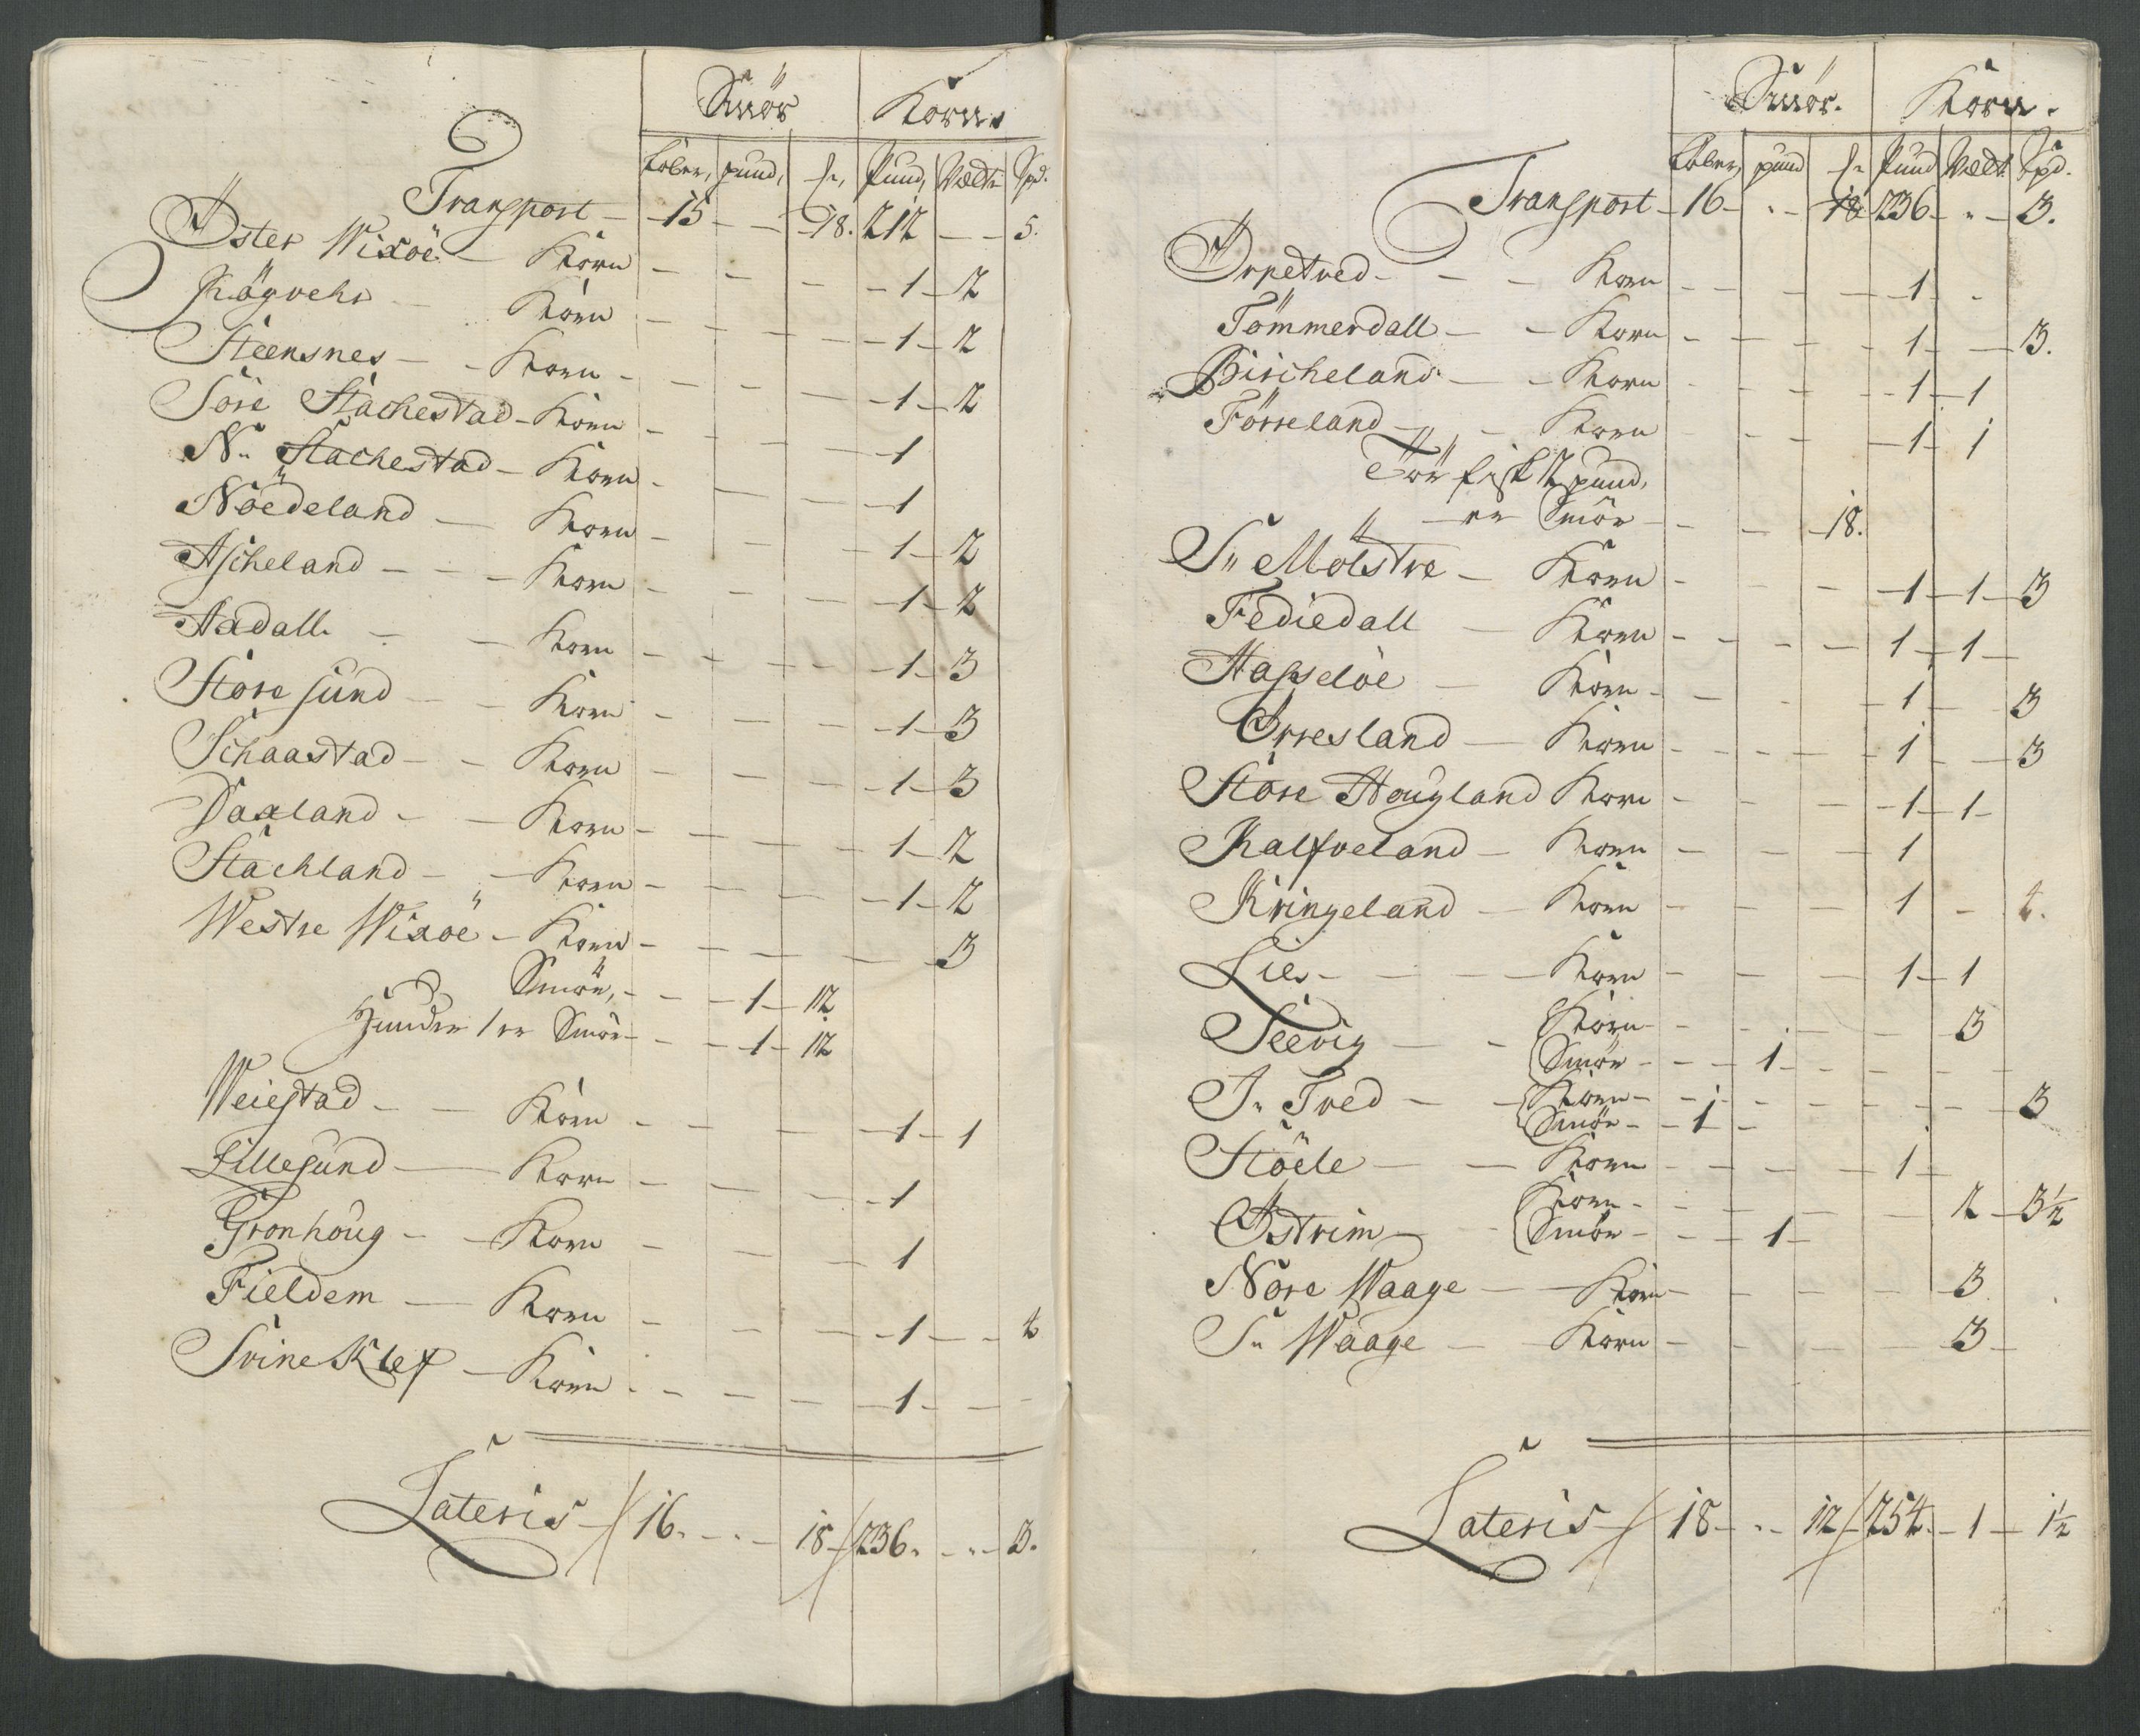 Smör Korn.
Løber, pund, Pund, Vædte Spd.
Transport - 15 - - 18. 212 - - 5.
Öster Wixöe - Korn - - - - 1 - 2
Korn - - - - 1 - 2
Steensnes - - Korn - - - - 1 - 2
Söre Stachestad - Korn - - - 1
N. Stachestad - Korn - - - 1
Nöedeland - Korn - - - 1 - 2
Ascheland - - - Korn - - - 1 - 2
Aadall. - - Korn - - - - 1 - 3
Storesund - - Korn - - - - 1 - 3
Schaastad - - Korn - - - - 1 - 3
Daaland - - Korn - - - - 1 - 2
Stachland - - Korn - - - - 1 - 2
Westre Wixöe - Korn - - - - 3
Smör, - - - 1 - 12
Hunder 1 er Smör - - - 1 - 12
Weiestad - - Korn - - - - 1 - 1
Lillesund - Korn - - - - 1
Gronhoug - - Korn - - - 1
Fieldem - Korn - - - - 1 - - 4
Svine Klef - Korn - - - - 1 - - -
Lateris - 16. - - 18 - 236. - - 3.
Smör. Korn.
Løber, pund Pund Vædt. Spd.
Transport - 16 - - 18 236 - - 3.
Orpetved - - - Korn - - - - 1 - -
Tömmerdall - - Korn - - - - 1 - - 3.
Bircheland - - Korn - - - 1 - 1
Förreland - - Korn - - - 1 - 1
Tör fisk 2 pund,
er Smör - - 18.
S. Mölstre - Korn - - - 1 - 1 - 3
Fediedall - Korn - - - - 1 - 1 -
Hasseløe - Korn - - - - 1 - - 3
Orresland - Korn - - - - 1 - - 3
Store Hougland Korn - - - - 1 - 1 -
Kalfveland - Korn - - - 1
Kringeland - Korn - - - 1 - 4.
Lie. - - - - Korn - - - 1 - 1
Seevig - - Korn - - - - - 3
Smör - - - 1 - - - - -
I. Tved - - Korn - - - - - - - - 3
Smör - - 1 -
Stöele - - Korn - - - - 1 -
Østrim - - Korn - - - - - 2 - 3½
Smör - - - 1 -
Nöre Waage - - Korn - - - - - 3
S. Waage - - Korn - - - - - 3 -
Lateris - 18 - - 12 254. - 1 - 1½